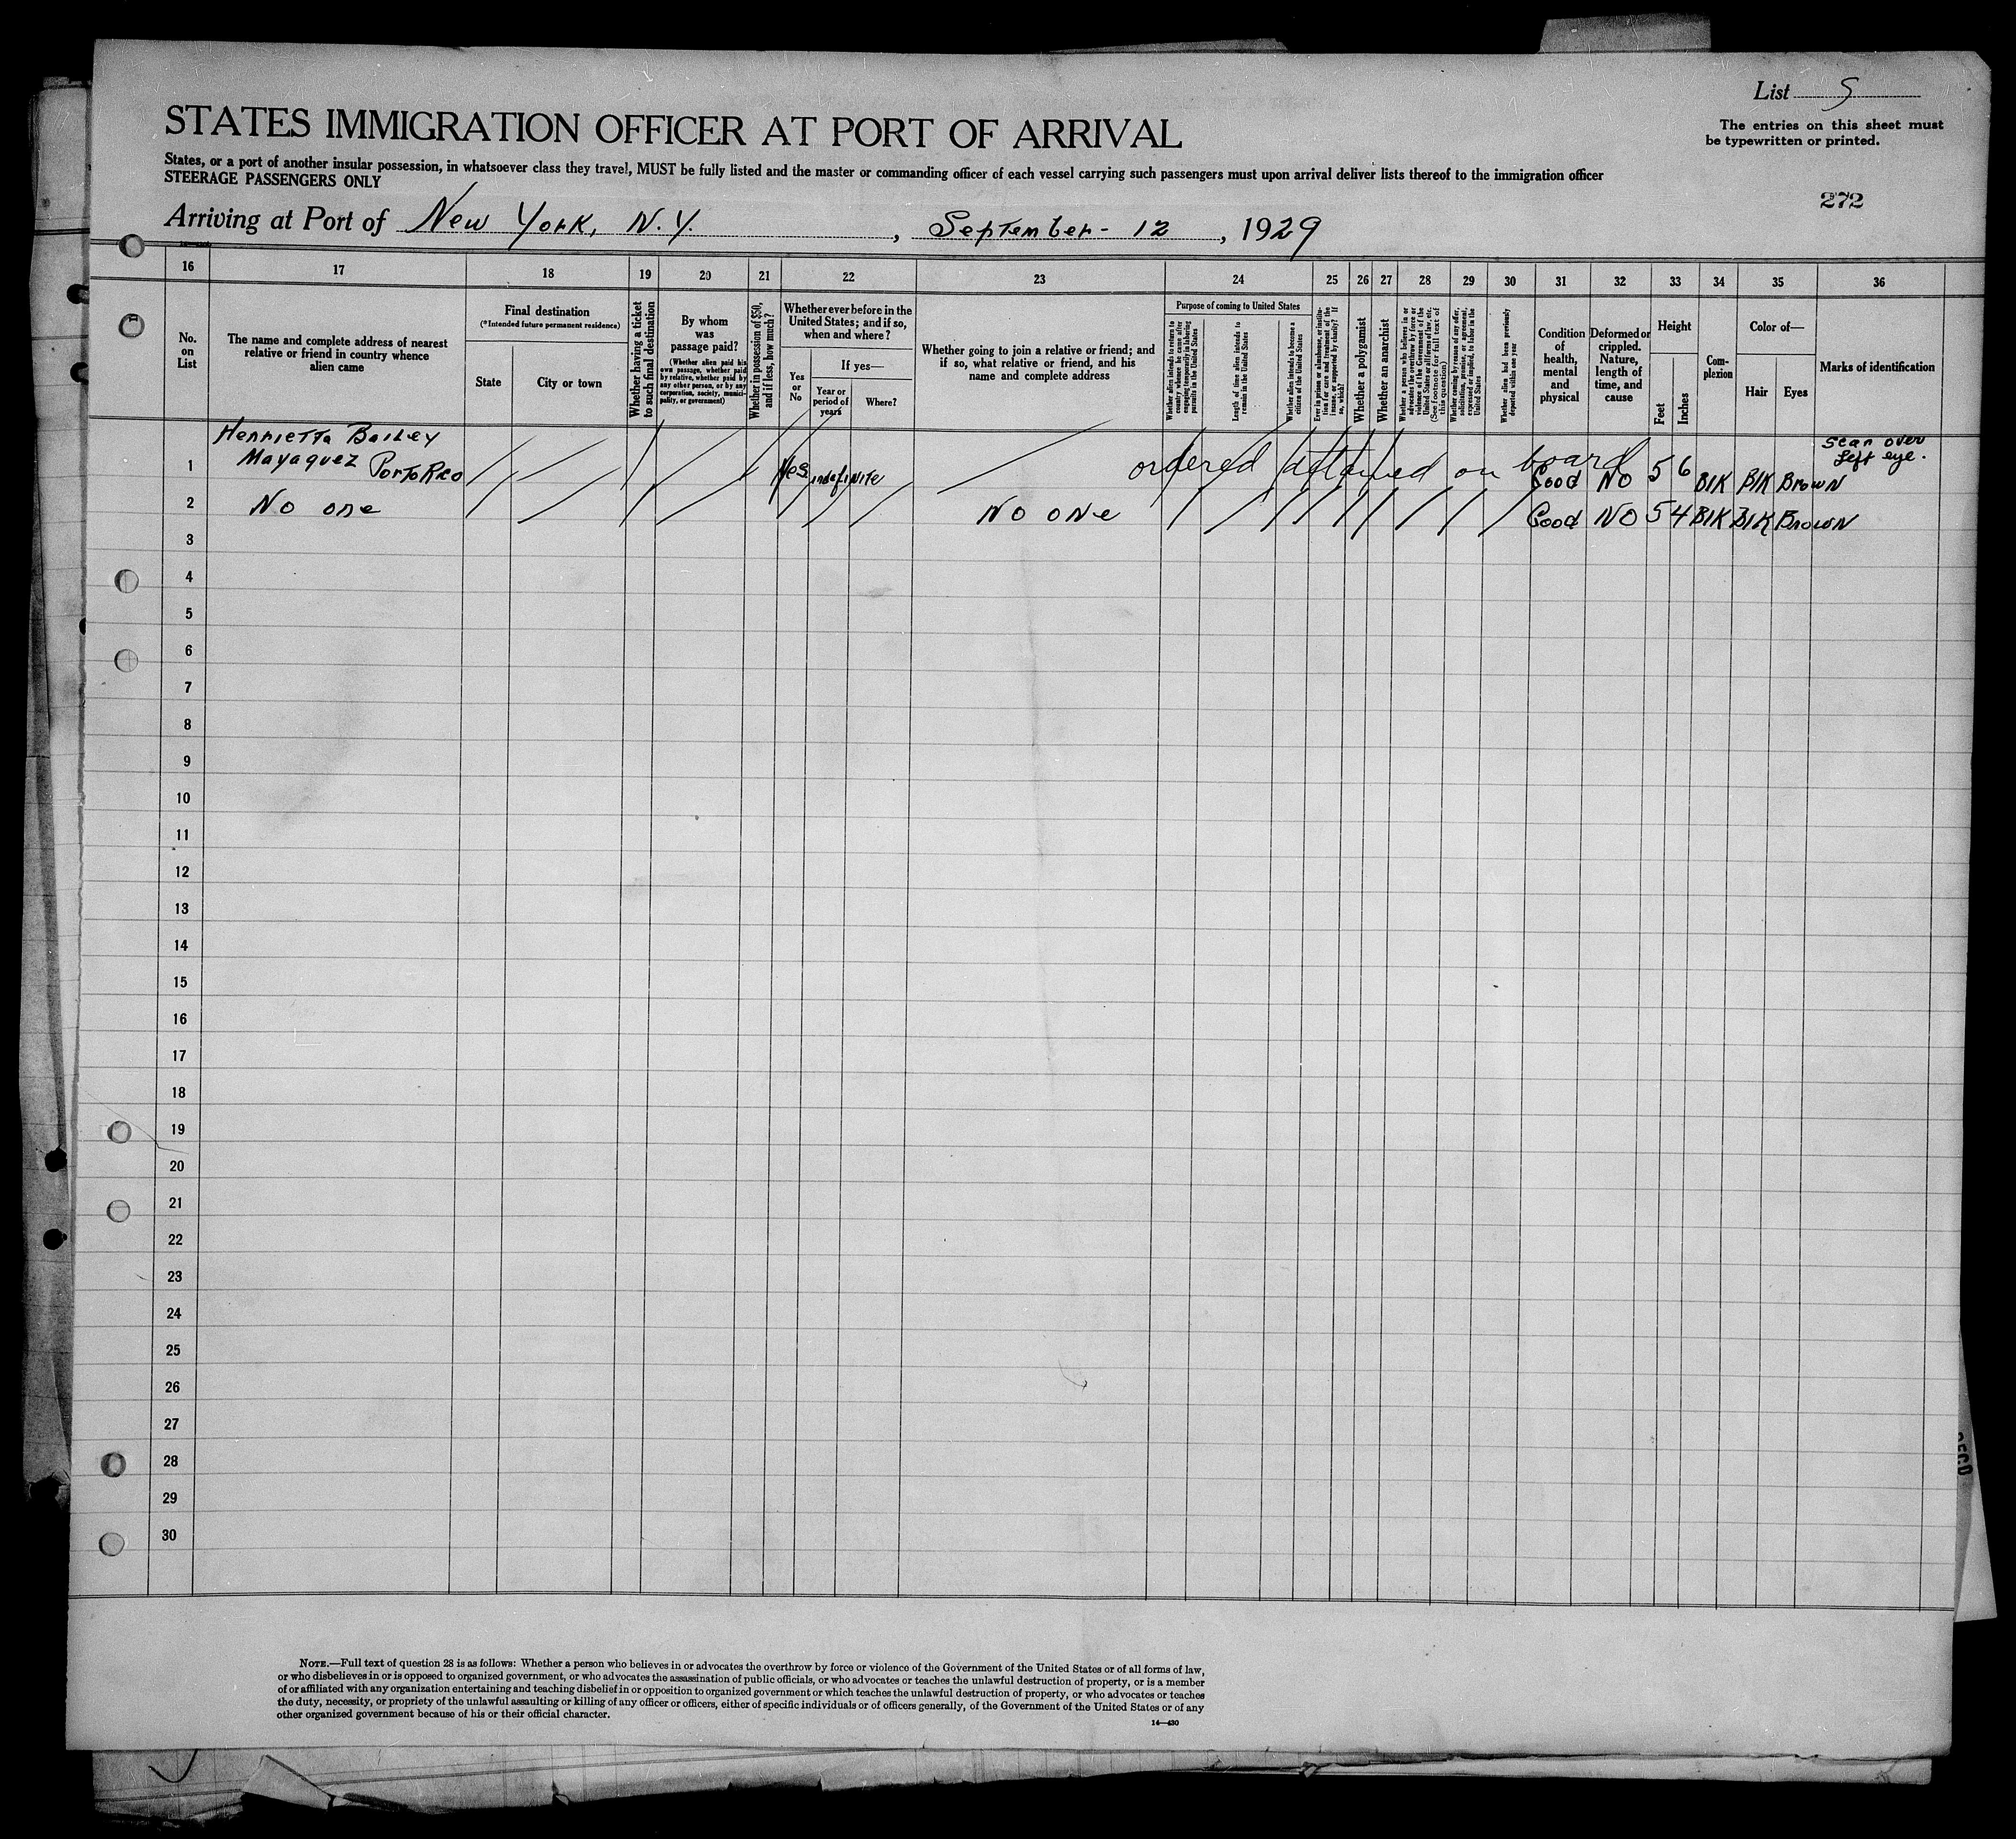 List S
The entries on this sheet must
be typewritten or printed.
STATES IMMIGRATION OFFICER AT PORT OF ARRIVAL
States, or a port of another insular possession, in whatsoever class they travel, MUST be fully listed and the master or commanding officer of each vessel carrying such passengers must upon arrival deliver lists thereof to the immigration officer
STEERAGE PASSENGERS ONLY
272
Arriving at Port of New York, N.Y. , September - 12 , 1929
16 17 18 19 20 21 22 23 24 25 26 27 28 29 30 31 32 33 34 35 36
No.
on
List
The name and complete address of nearest
relative or friend in country whence
alien came
Final destination
(*Intended future permanent residence)
State
City or town
Whether having a ticket
to such final destination
By whom
was
passage paid?
(Whether alien paid his
own passage, whether paid
by relative, whether paid by
any other person, or by any
corporation, society, munici-
pality, or government)
Whether in possession of $50,
and if less, how much?
Whether ever before in the
United States; and if so,
when and where?
Yes
or
No
If yes—
Year or
period of
years
Where?
Whether going to join a relative or friend; and
if so, what relative or friend, and his
name and complete address
Purpose of coming to United States
Whether alien intends to return to
country whence he came after
engaging temporarily in laboring
pursuits in the United States
Length of time alien intends to
remain in the United States
Whether alien intends to become a
citizen of the United States
Ever in prison or almshouse, or institu-
tion for care and treatment of the
insane, or supported by charity? If
so, which?
Whether a polygamist
Whether an anarchist
Whether a person who believes in or
advocates the overthrow by force or
violence of the Government of the
United States or all forms of law, etc.
(See footnote for full text of
this question)
Whether coming by reason of any offer,
solicitation, promise, or agreement,
expressed or implied, to labor in the
United States
Whether alien had been previously
deported within one year
Condition
of
health,
mental
and
physical
Deformed or
crippled.
Nature,
length of
time, and
cause
Height
Feet
Inches
Com-
plexion
Color of—
Hair
Eyes
Marks of identification
Henrietta Bailey
1 Mayaquez Porto Rco Yes indefinite ordered detained on board Good NO 5 6 Blk Blk Brown Scar over
left eye.
2 No one No one Good NO 5 4 Blk Blk Brown
3
4
5
6
7
8
9
10
11
12
13
14
15
16
17
18
19
20
21
22
23
24
25
26
27
28
29
30
NOTE.—Full text of question 28 is as follows: Whether a person who believes in or advocates the overthrow by force or violence of the Government of the United States or of all forms of law,
or who disbelieves in or is opposed to organized government, or who advocates the assassination of public officials, or who advocates or teaches the unlawful destruction of property, or is a member
of or affiliated with any organization entertaining and teaching disbelief in or opposition to organized government or which teaches the unlawful destruction of property, or who advocates or teaches
the duty, necessity, or propriety of the unlawful assaulting or killing of any officer or officers, either of specific individuals or of officers generally, of the Government of the United States or of any
other organized government because of his or their official character.
14—430